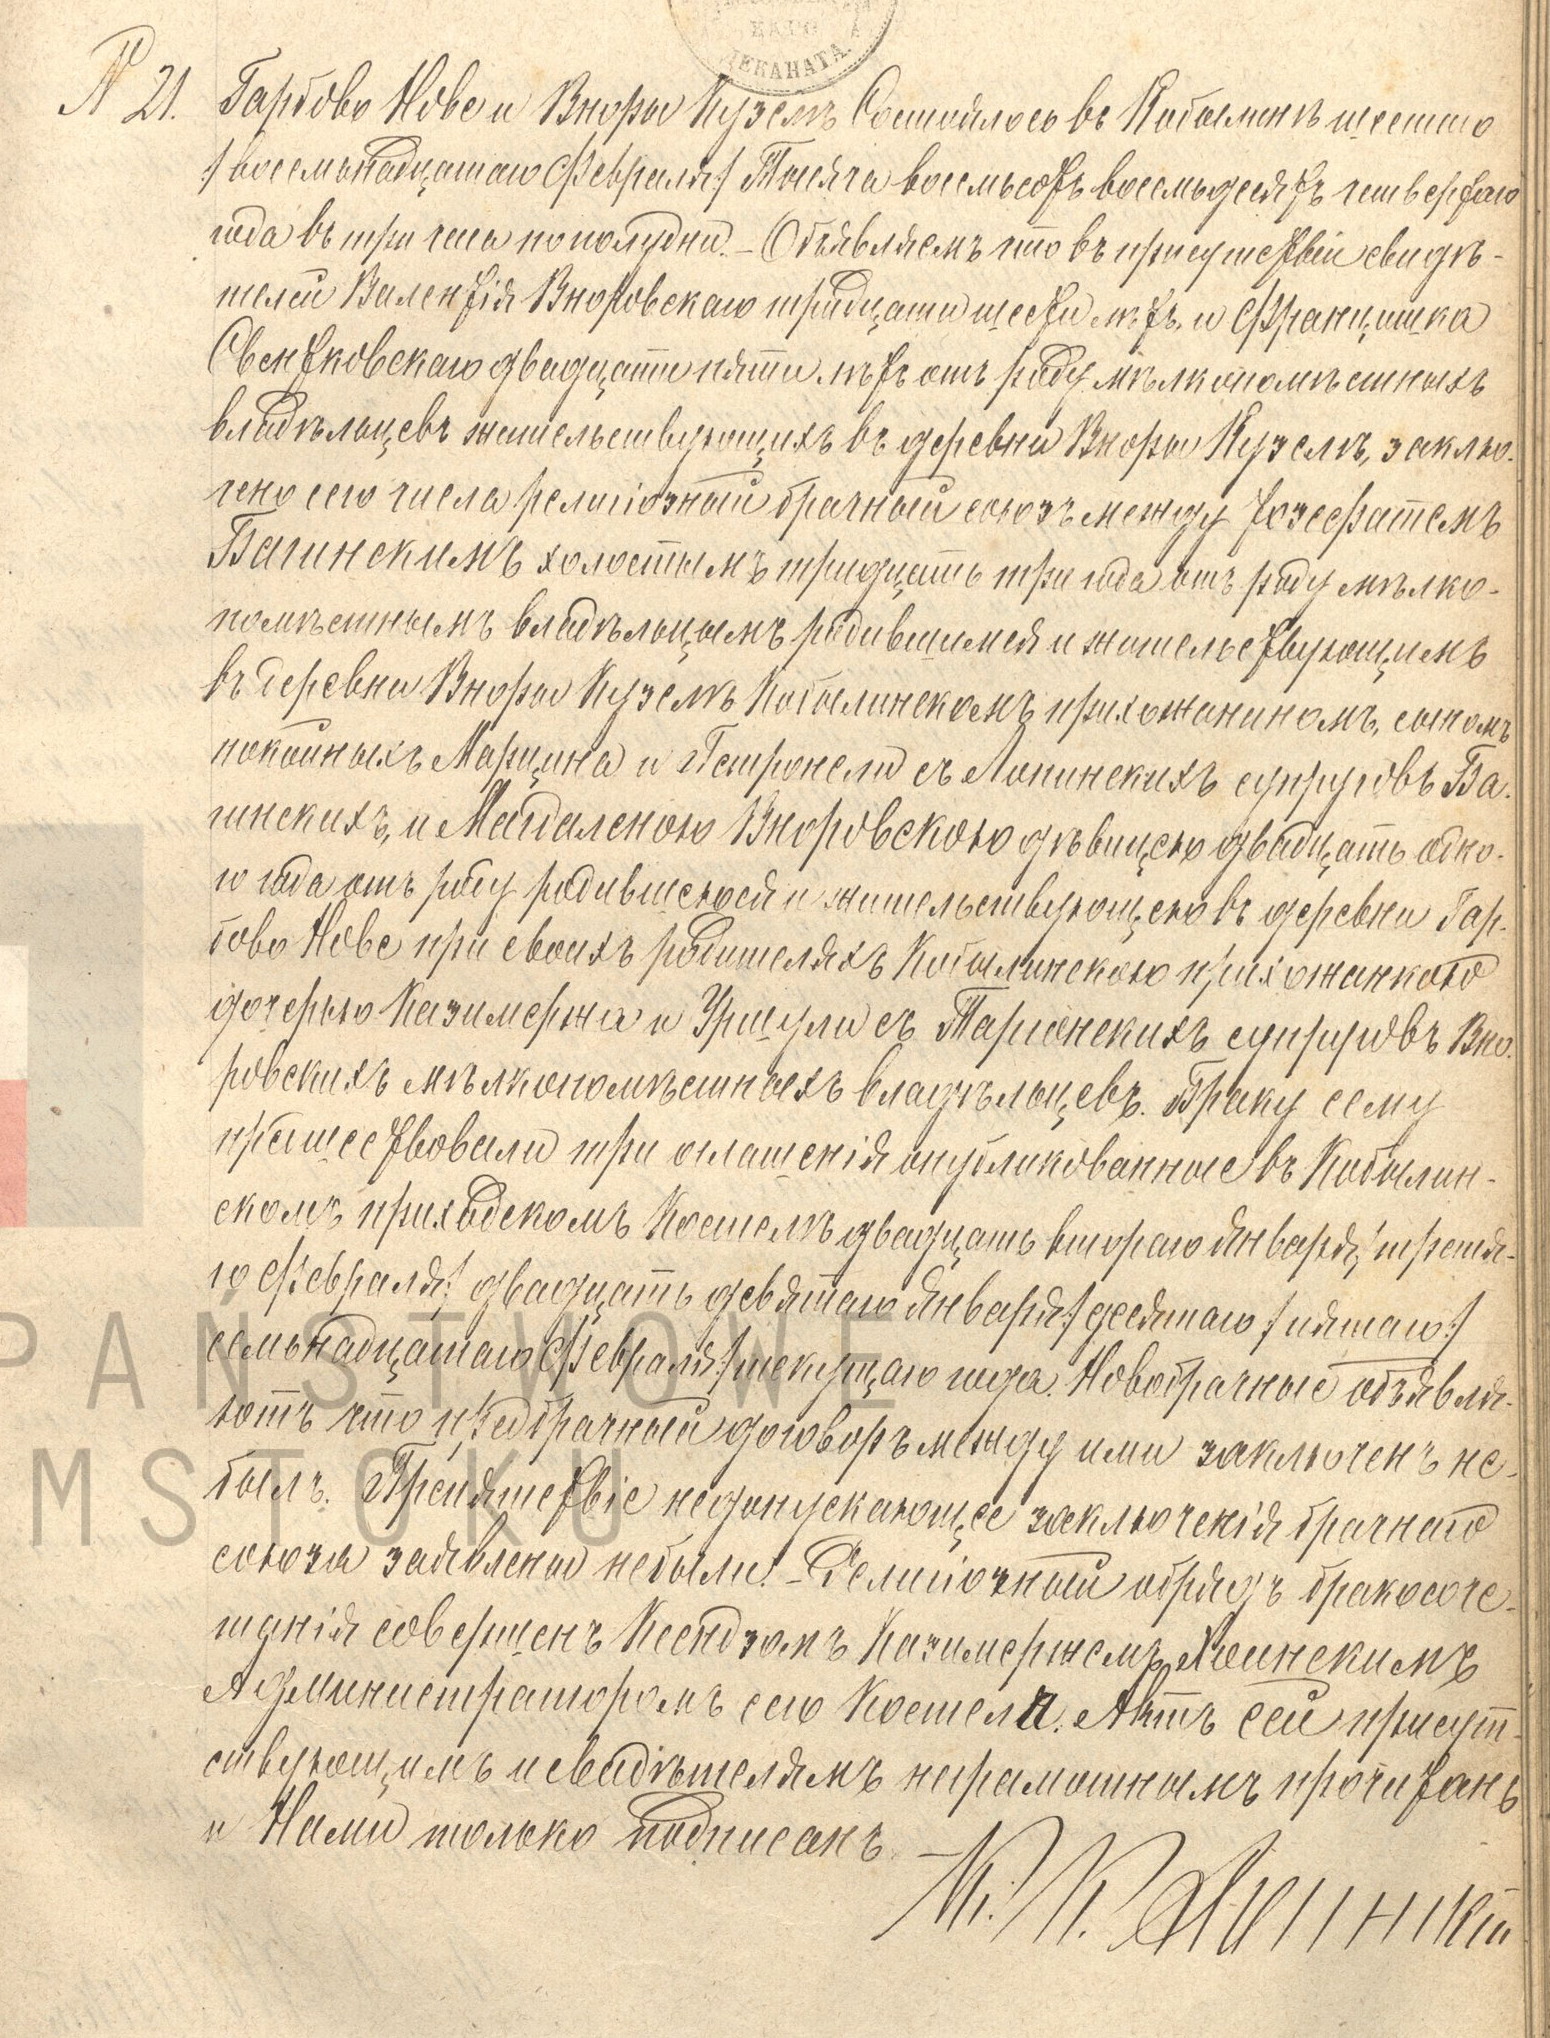 КАГО
ДЕКАНАТА.
№ 21. Гарбово Нове и Вноры Кузелъ Состоялось въ Кобылинѣ шестаго
/восемьнадцатаго Февраля/ Тысяча восемьсотъ восемьдесятъ четвертаго
года въ три часа пополудни. – Объявляемъ что въ присутствіи свидѣ-
телей Валентія Вноровскаго тридцати шести лѣтъ, и Францишка
Свентковскаго двадцати пяти лѣтъ отъ роду мѣлкопомѣстныхъ
владѣльцевъ жительствующихъ въ деревни Вноры Кузелъ, заклю-
чено сего числа религіозный брачный союзъ между Іозефатемъ
Багинскимъ холостымъ тридцать три года отъ роду мѣлко-
помѣстнымъ владѣльцымъ родившимся и жительствующимъ
въ деревни Вноры Кузелъ Кобылинскомъ прихожаниномъ, сыномъ
покойныхъ Марцина и Петронели съ Лопинскихъ супруговъ Ба-
гинскихъ, и Магдаленою Вноровскою дѣвицею двадцать одно-
го года отъ роду родившеюся и жительствующею въ деревни Гар-
бово Нове при своихъ родителяхъ Кобылинскою прихожанкою
дочерью Казимержа и Уршули съ Таргонскихъ супруговъ Вно-
ровскихъ мѣлкопомѣстныхъ владѣльцевъ. Браку сему
предшествовали три оглашенія опубликованные въ Кобылин-
скомъ приходскомъ Костелѣ двадцать втораго Января /третья-
го Февраля/ двадцать девятаго Января /десятаго/ пятаго/
семьнадцатаго Февраля/ текущаго года. Новобрачные объявля-
ютъ что предбрачный договоръ между ими заключенъ не-
былъ. Препятствіе недопускающее заключенія брачнаго
союза заявлены небыли. – Религіозный обрядъ бракосоче-
танія совершенъ Ксендзомъ Казимержемъ
Администраторомъ сего Костела. Актъ сей присут-
ствующимъ и свидѣтелямъ неграмотнымъ прочитанъ
и Нами только подписанъ. –
PAŃSTWOWE
MSTOKU